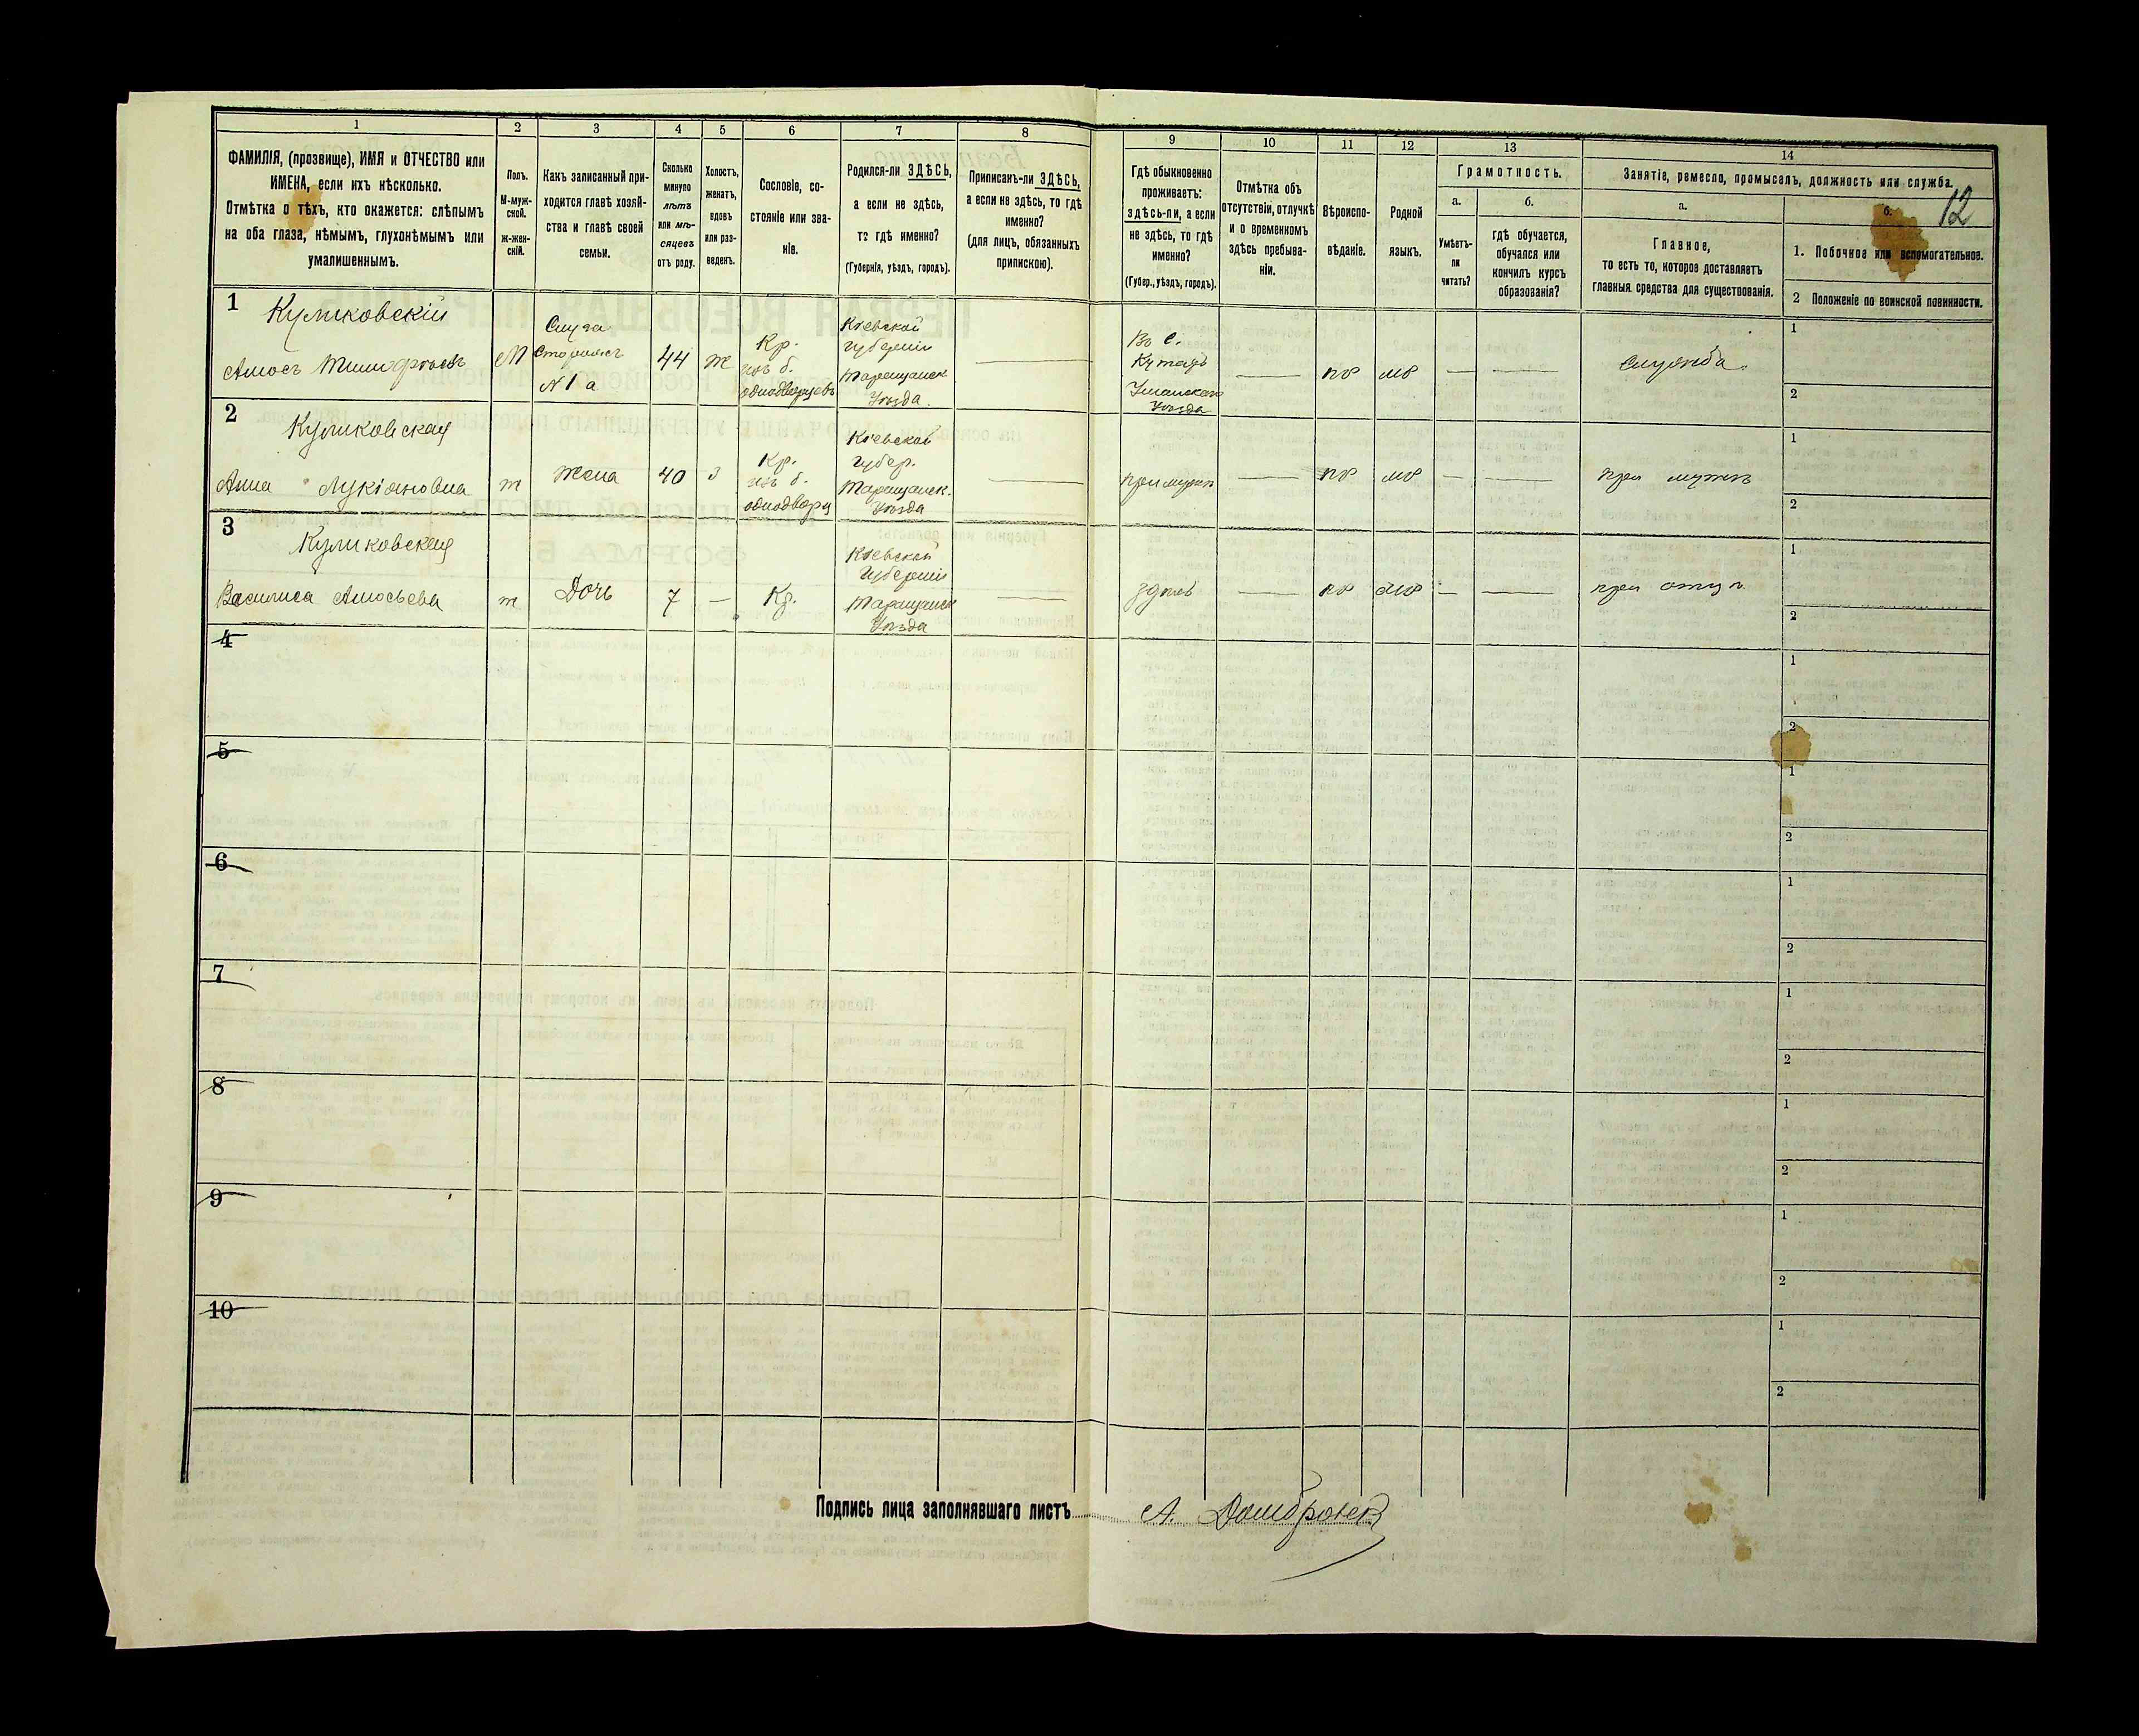 12
1 2 3 4 5 6 7 8 9 10 11 12 13 14
ФАМИЛІЯ, (прозвище), ИМЯ и ОТЧЕСТВО или
ИМЕНА, если ихъ нѣсколько.
Отмѣтка о тѣхъ, кто окажется: слѣпымъ
на оба глаза, нѣмымъ, глухонѣмымъ или
умалишеннымъ.
Полъ.
М-муж-
ской.
ж-жен-
скій.
Какъ записанный при-
ходится главѣ хозяй-
ства и главѣ своей
семьи.
Сколько
минуло
лѣтъ
или мѣ-
сяцевъ
отъ роду.
Холостъ,
женатъ,
вдовъ
или раз-
веденъ.
Сословіе, со-
стояніе или зва-
ніе.
Родился-ли ЗДѢСЬ,
а если не здѣсь,
то гдѣ именно?
(Губернія, уѣздъ, городъ).
Приписанъ-ли ЗДѢСЬ,
а если не здѣсь, то гдѣ
именно?
(для лицъ, обязанныхъ
припискою).
Гдѣ обыкновенно
проживаетъ:
здѣсь-ли, а если
не здѣсь, то гдѣ
именно?
(Губер., уѣздъ, городъ).
Отмѣтка объ
отсутствіи, отлучкѣ
и о временномъ
здѣсь пребыва-
ніи.
Вѣроиспо-
вѣданіе.
Родной
языкъ.
Грамотность.
а.
Умѣетъ-
ли
читать?
б.
гдѣ обучается,
обучался или
кончилъ курсъ
образованія?
Занятіе, ремесло, промыселъ, должность или служба.
а.
Главное,
то есть то, которое доставляетъ
главныя средства для существованія.
б.
1. Побочное или вспомогательное.
2 Положеніе по воинской повинности.
1
Куликовскій
Амосъ
М
Слуга
N 1 а
44
ж
Кр.
изъ б.
однодворцевъ
Кіевской
губерніи
Таращанск
Уѣзда.
Во с.
Уманскаго
Уѣзда
пр
мр
— —
служба
1
2
2
Куликовская
Анна Лукіановна
ж
жена
40
З
Кр.
изъ б.
однодворц
Кіевской
губер.
Таращанск.
Уѣзда
при мужѣ
пр
мр
— —
при мужѣ
1
2
3
Куликовская
Василиса Амосьева
ж
Дочь
7
—
Кр.
Кіевской
Губерніи
Таращанск
Уѣзда
здѣсь
пр
мр
— —
при отцѣ
1
2
4
1
2
5
1
2
6
1
2
7
1
2
8
1
2
9
1
2
10
1
2
Подпись лица заполнявшаго листъ
А.